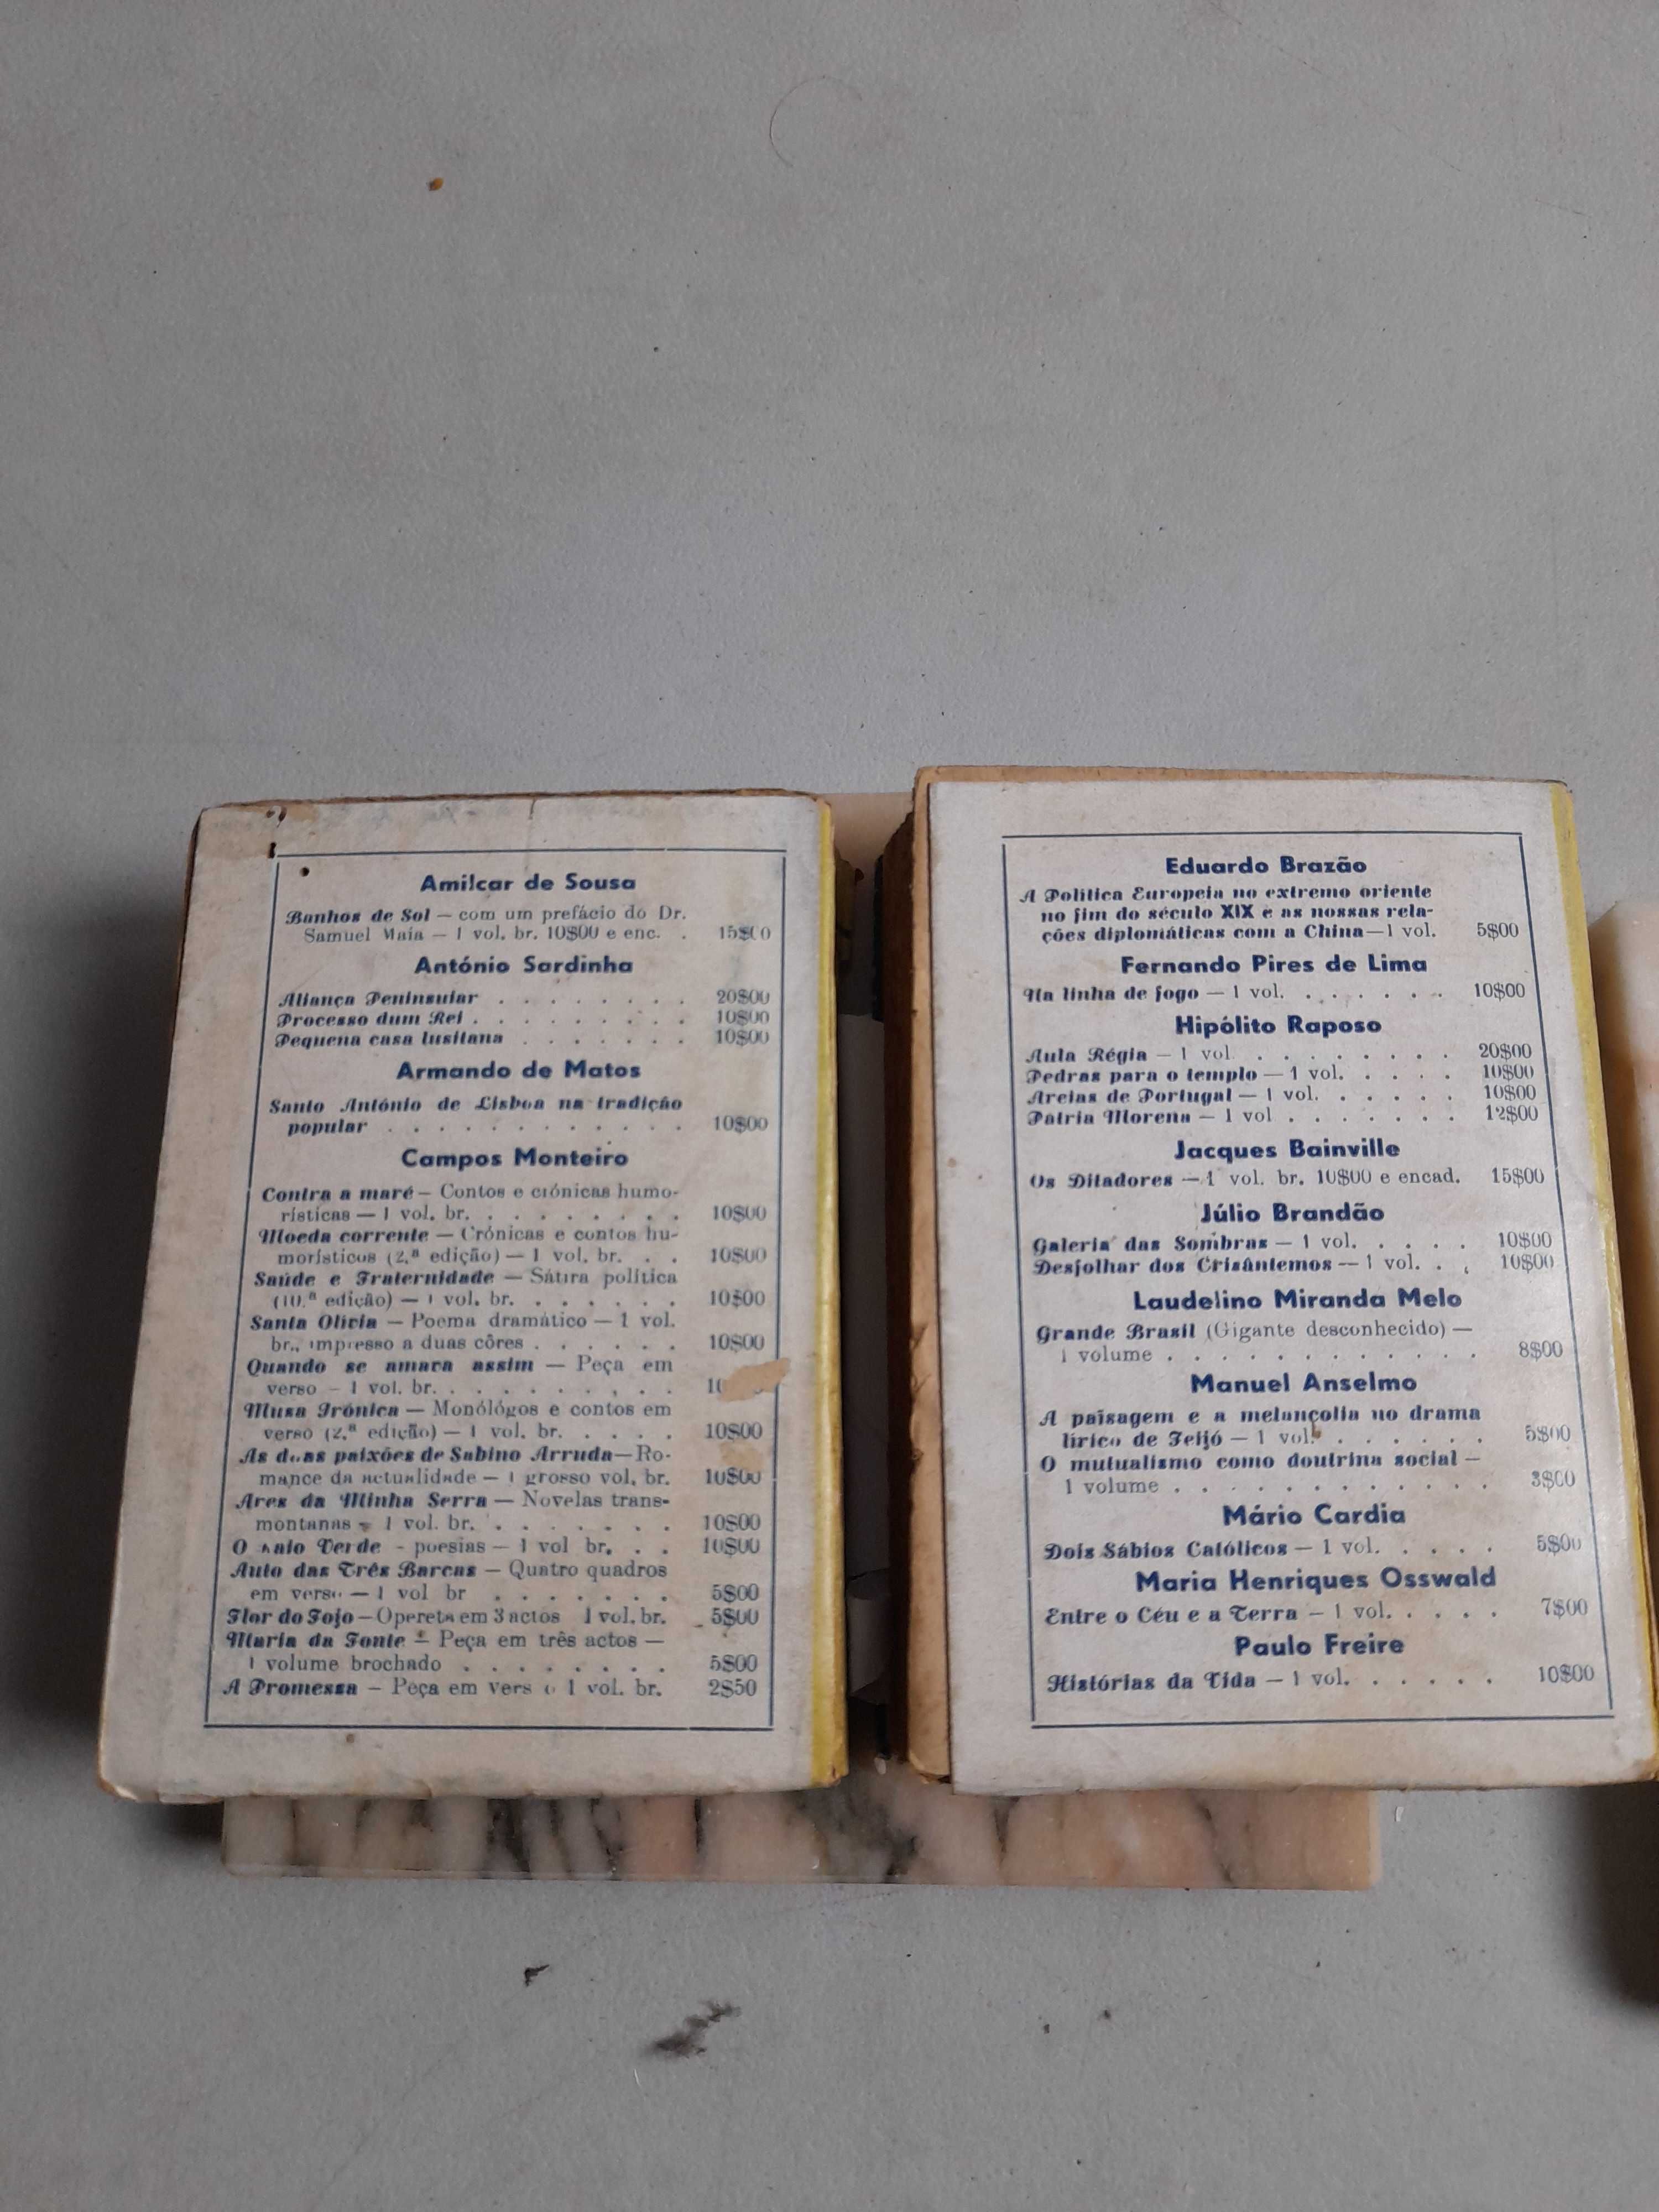 Amilcar de Sousa
Banhos de Sol — com um prefácio do Dr.
Samuel Maia — 1 vol. br. 10$00 e enc. . 15$00
António Sardinha
Aliança Peninsular . . . . . . . . 20$00
Processo dum Rei . . . . . . . . . 10$00
Pequena casa lusitana . . . . . . . 10$00
Armando de Matos
Santo António de Lisboa na tradição
popular . . . . . . . . . . . . 10$00
Campos Monteiro
Contra a maré — Contos e crónicas humo-
rísticas — 1 vol. br. . . . . . . . . 10$00
Moeda corrente — Crónicas e contos hu-
morísticos (2.ª edição) — 1 vol. br. . . 10$00
Saúde e Fraternidade — Sátira política
(10.ª edição) — 1 vol. br. . . . . . . 10$00
Santa Olívia — Poema dramático — 1 vol.
br., impresso a duas côres . . . . . . 10$00
Quando se amara assim — Peça em
verso — 1 vol. br. . . . . . . . . . 10
Musa Irónica — Monólógos e contos em
verso (2.ª edição) — 1 vol. br. . . . . 10$00
As duas paixões de Sabino Arruda — Ro-
mance da actualidade — 1 grosso vol. br. 10$00
Ares da Minha Serra — Novelas trans-
montanas — 1 vol. br. . . . . . . . 10$00
O Raio Verde - poesias — 1 vol br. . . 10$00
Auto das Três Barcas — Quatro quadros
em verso — 1 vol br . . . . . . . 5$00
Flor do Tojo — Opereta em 3 actos 1 vol. br. 5$00
Maria da Fonte — Peça em três actos —
1 volume brochado . . . . . . . . 5$00
A Promessa — Peça em verso 1 vol. br. 2$50
Eduardo Brazão
A Política Europeia no extremo oriente
no fim do século XIX e as nossas rela-
ções diplomáticas com a China — 1 vol. 5$00
Fernando Pires de Lima
Na linha de fogo — 1 vol. . . . . . . 10$00
Hipólito Raposo
Aula Régia — 1 vol . . . . . . . . . 20$00
Pedras para o templo — 1 vol. . . . . 10$00
Areias de Portugal — 1 vol. . . . . . 10$00
Pátria Morena — 1 vol . . . . . . . 12$00
Jacques Bainville
Os Ditadores — 1 vol. br. 10$00 e encad. 15$00
Júlio Brandão
Galeria das Sombras — 1 vol. . . . . 10$00
Desfolhar dos Crisântemos — 1 vol. . . 10$00
Laudelino Miranda Melo
Grande Brasil (Gigante desconhecido) —
1 volume . . . . . . . . . . . . 8$00
Manuel Anselmo
A paisagem e a melancolia no drama
lírico de Feijó — 1 vol. . . . . . . 5$00
O mutualismo como doutrina social —
1 volume . . . . . . . . . . . . 3$00
Mário Cardia
Dois Sábios Católicos — 1 vol. . . . . 5$00
Maria Henriques Osswald
Entre o Céu e a Terra — 1 vol. . . . . 7$00
Paulo Freire
Histórias da Vida — 1 vol. . . . . . 10$00